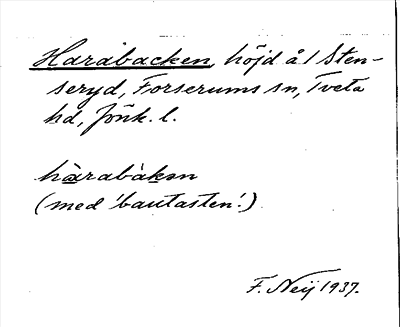 Harabacken, höjd å l Sten-
seryd, Forserums sn, Tveta
hd, Jönk. l.
hàrabàkən
(med 'bautasten'.)
F. Neij 1937.